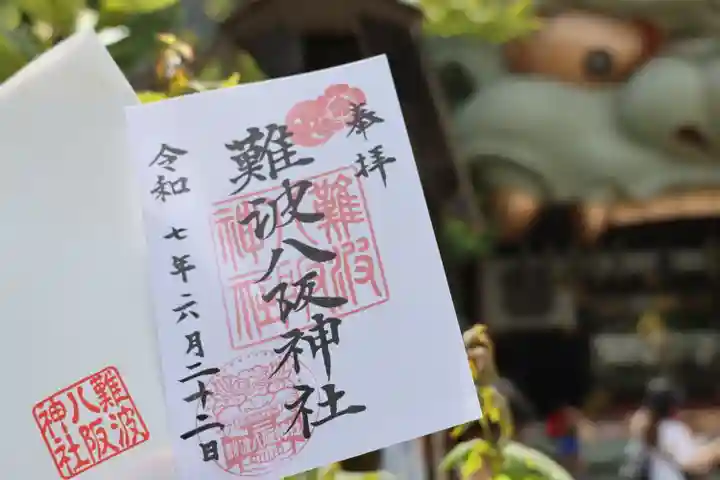 奉拝
難波八阪神社
令和七年六月二十二日
難波
八阪
神社
難波
八阪
神社